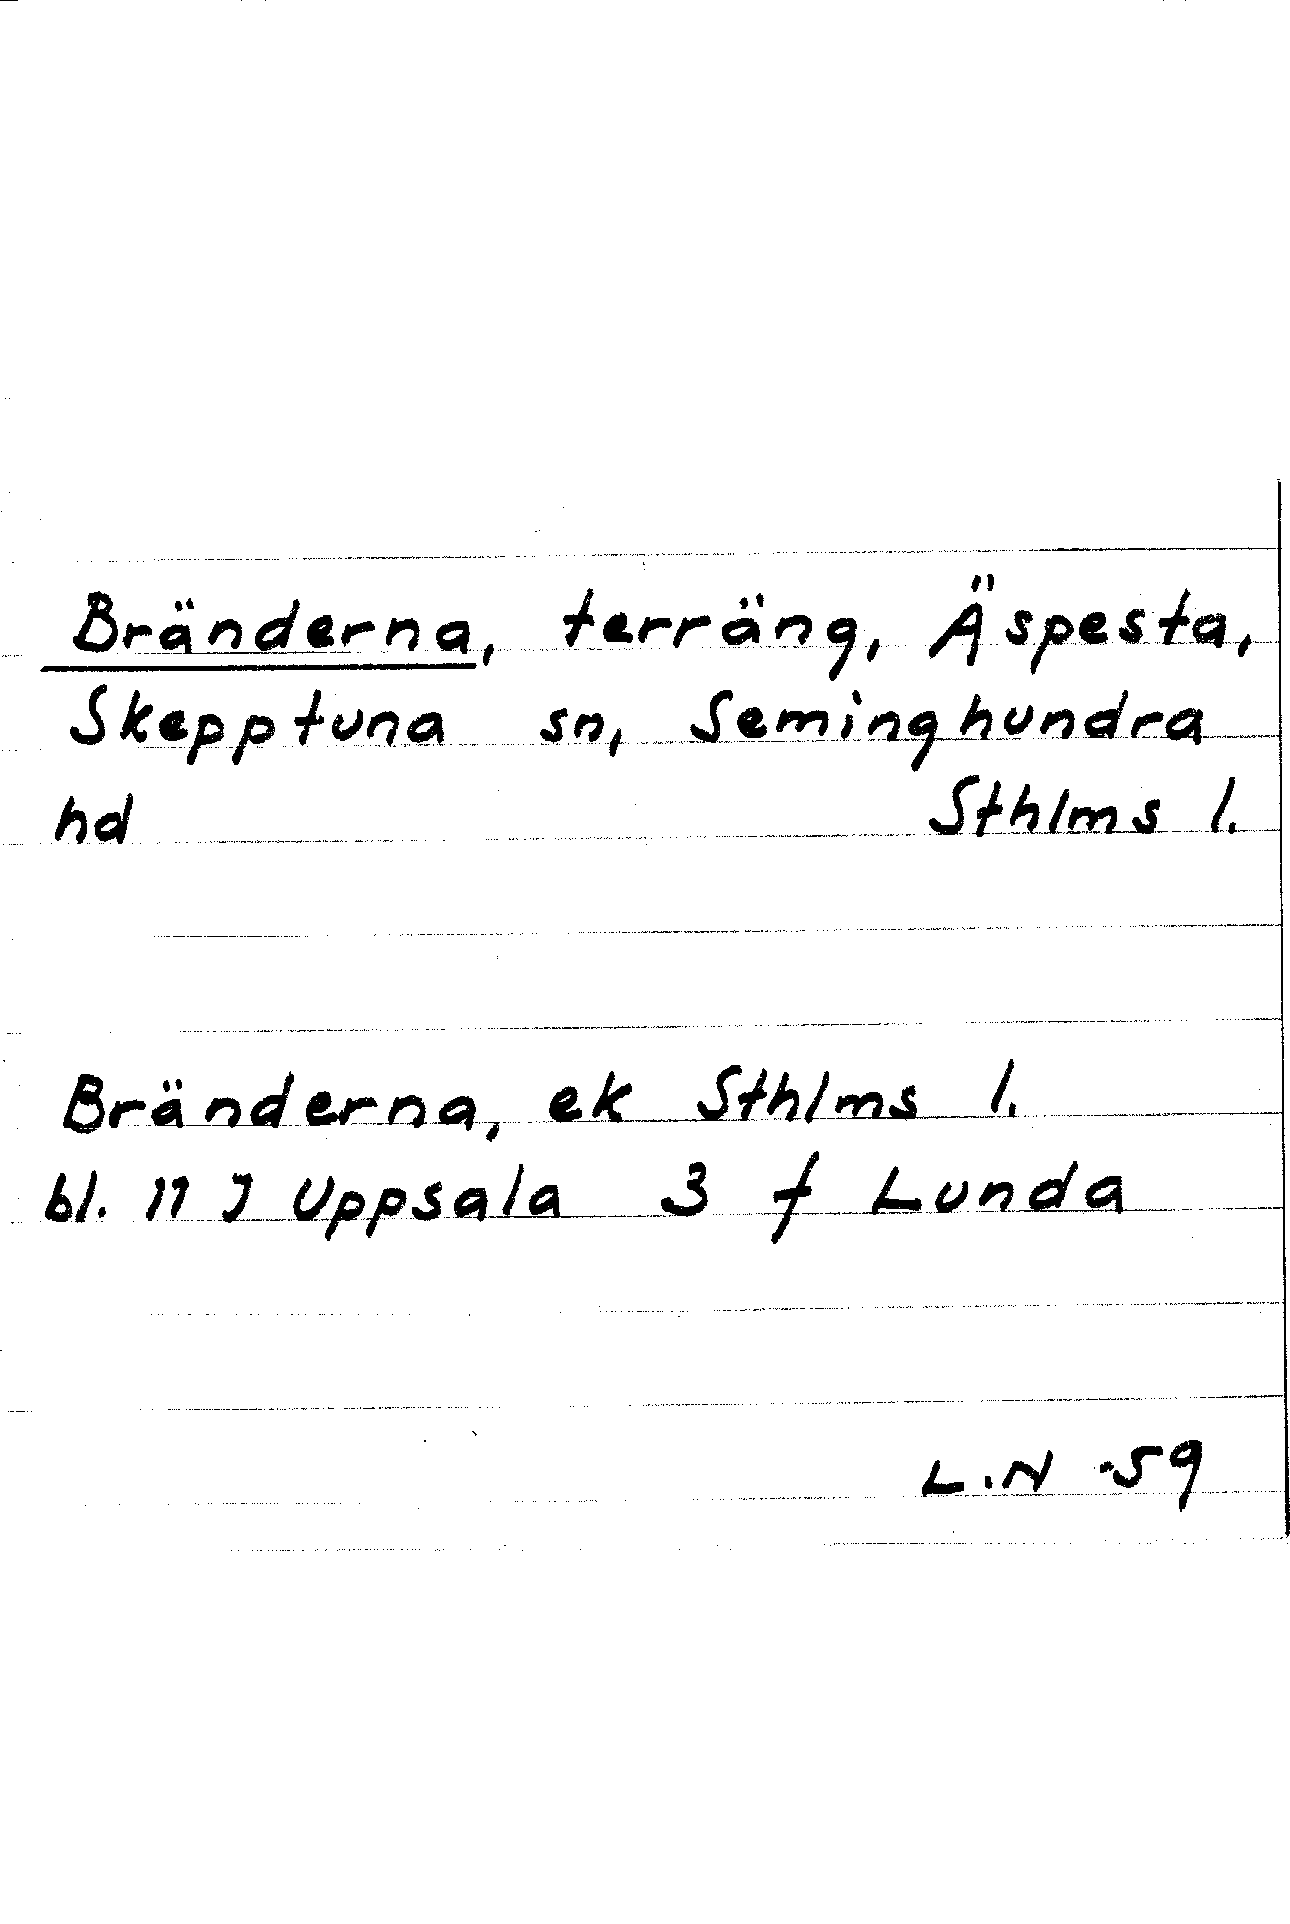 Bränderna, terräng, Äspesta,
Skepptuna sn, Seminghundra
hd Sthlms l.
Bränderna, ek Sthlms l.
bl. 11 J Uppsala 3 f Lunda
L.N -59